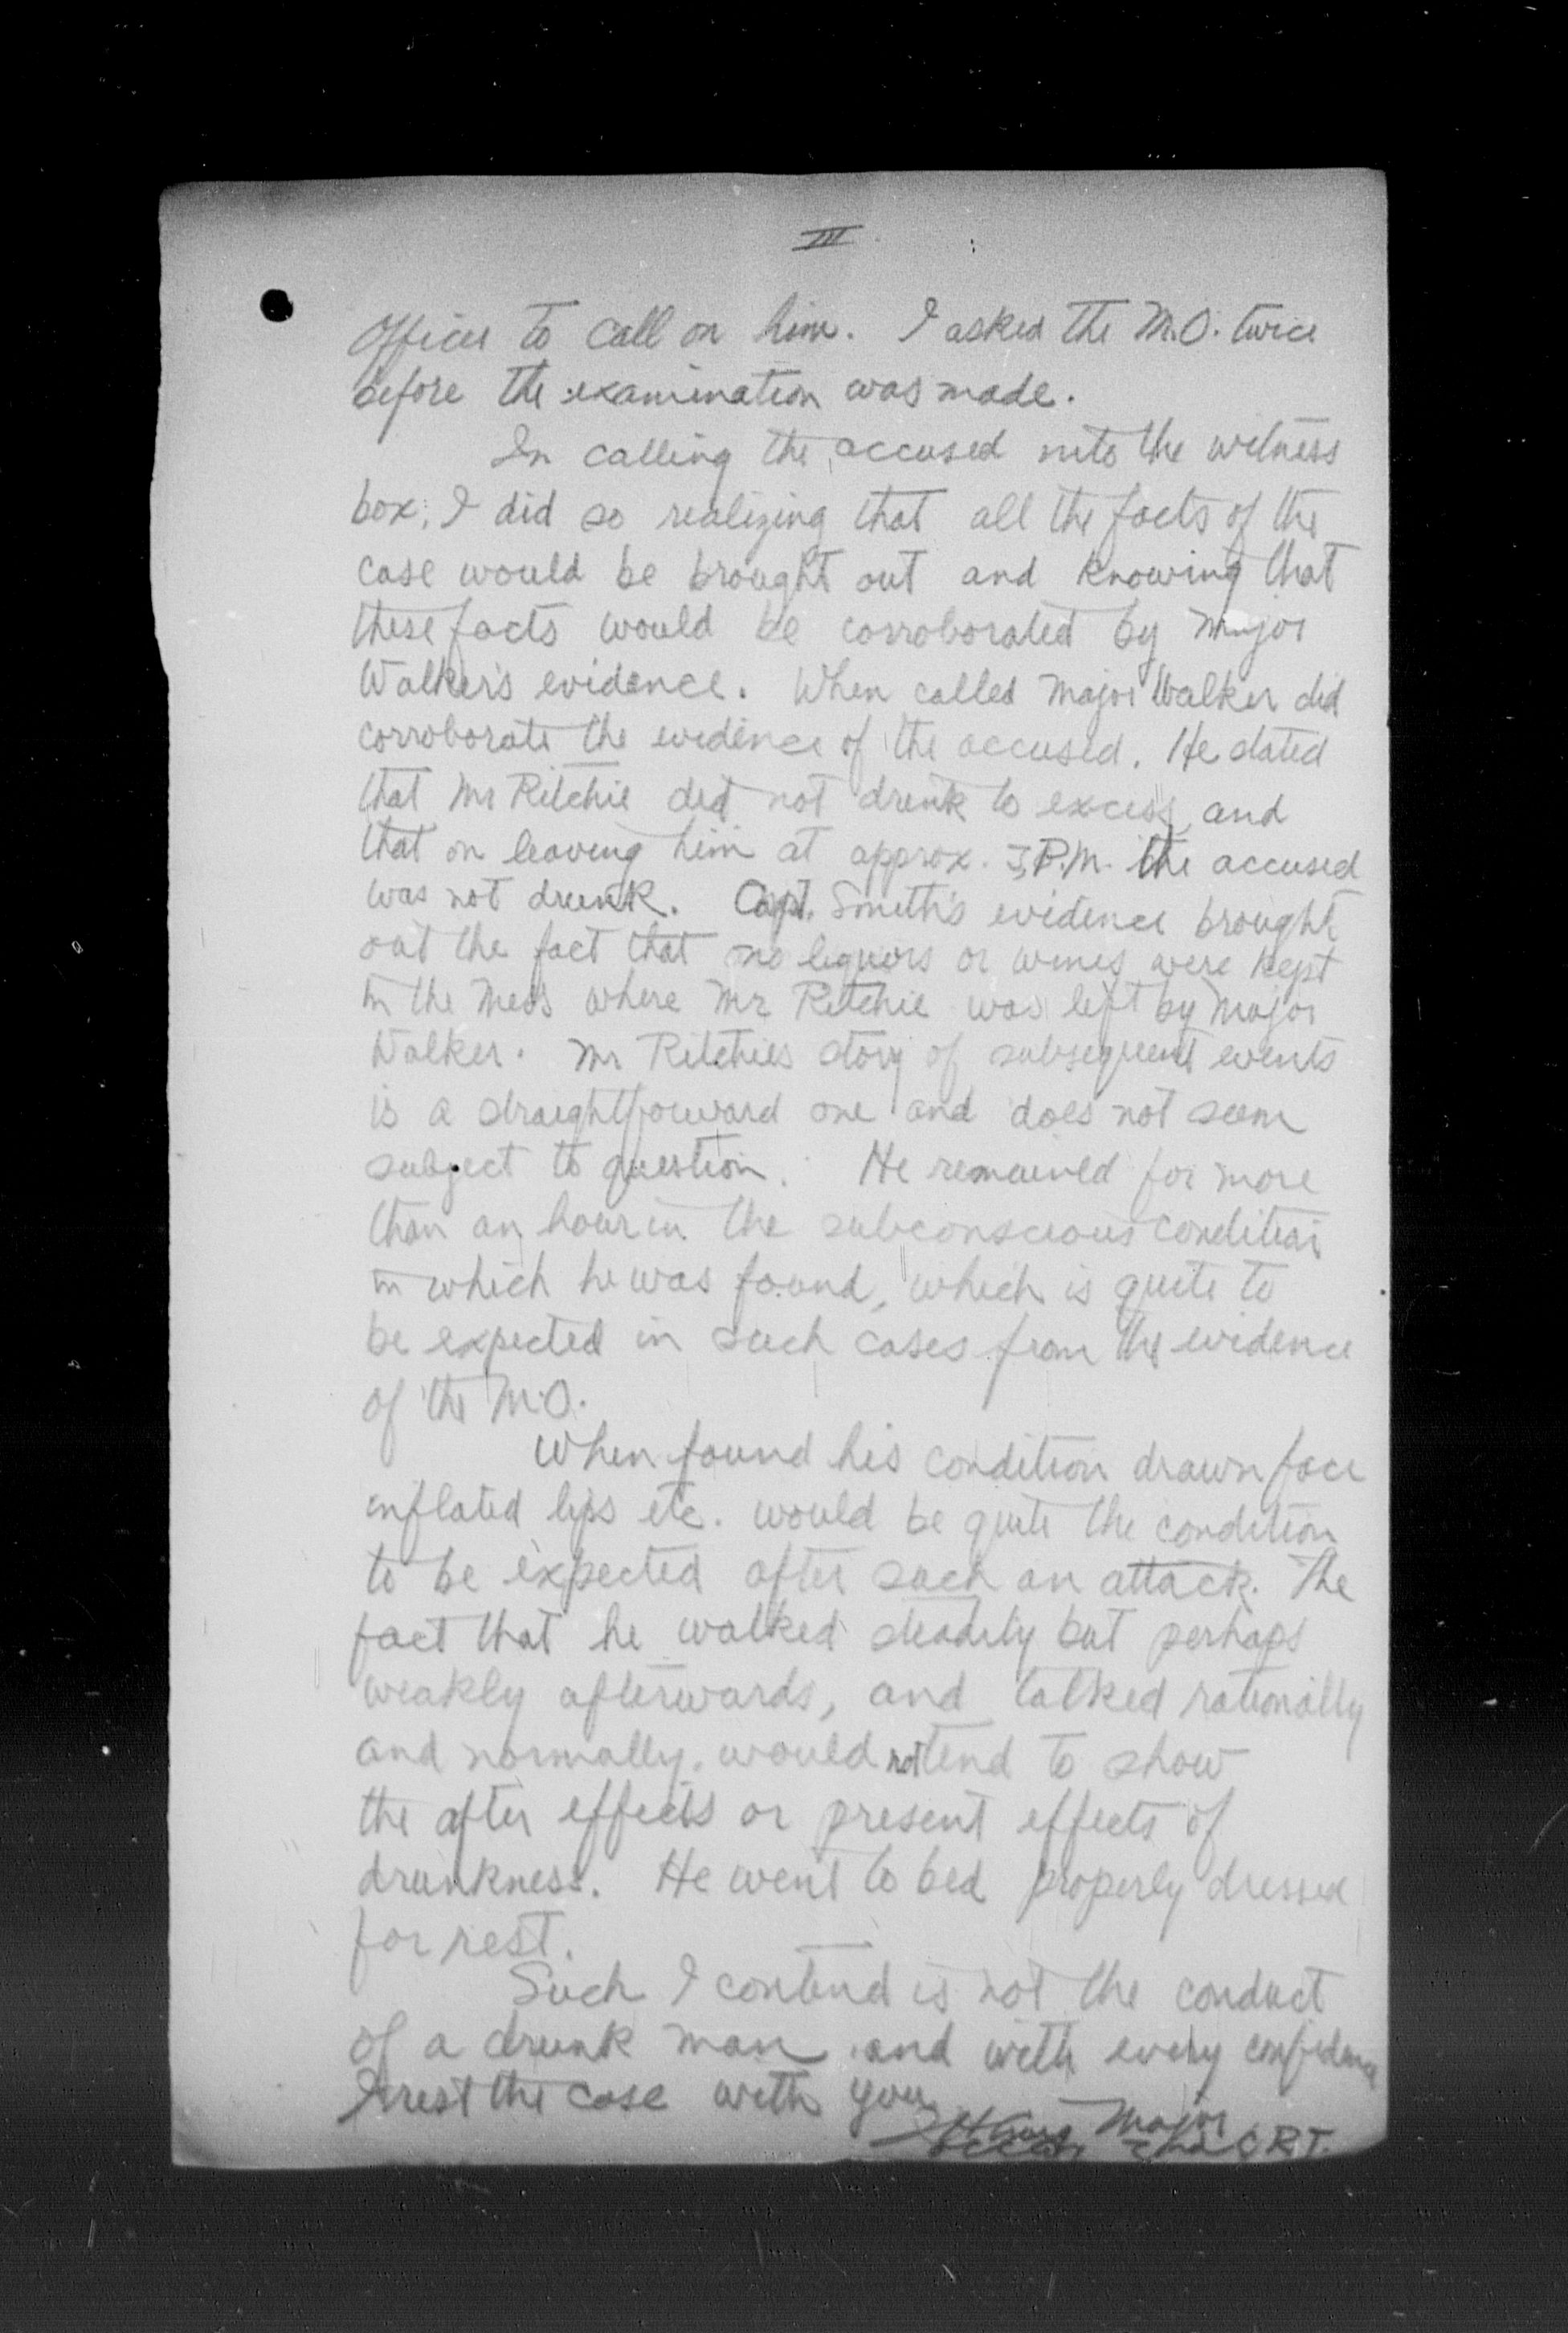 III
Officer to call on him. I asked the M.O. twice
before the examination was made.
In calling the accused into the witness
box, I did so realizing that all the facts of the
case would be brought out and knowing that
these facts would be corroborated by Major
Walker's evidence. When called Major Walker did
corroborate the evidence of the accused. He stated
that Mr Ritchie did not drink to excess, and
that on leaving him at approx. P.M. the accused
was not drunk. Capt. Smith's evidence brought
out the fact that no liquors or wines were kept
in the Mess where Mr Ritchie was left by Major
Walker. Mr Ritchies story of subsequent events
is a straightforward one and does not seem
subject to question. He remained for more
than an hour in the subconscious condition
in which he was found, which is quite to
be expected in such cases from the evidence
of the M.O.
When found his condition drawn face
inflated lips etc. would be quite the condition
to be expected after such an attack. The
fact that he walked steadily but perhaps
weakly afterwards, and talked rationally
and normally, would not tend to show
the after effects or present effects of
drunkness. He went to bed properly dressed
for rest.
Such I contend is not the conduct
of a drunk man and with every confidence
I rest the case with you
Major
C.R.T.